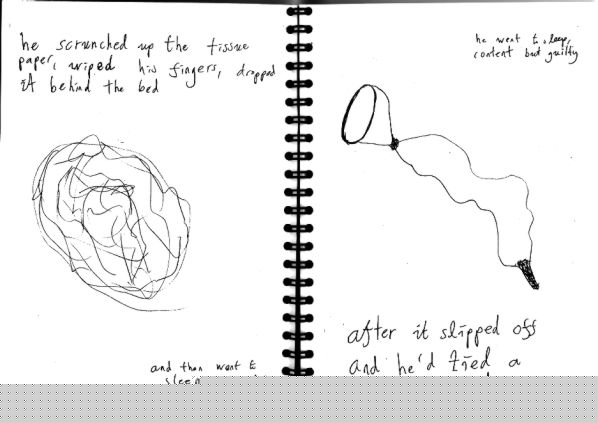 he scrunched up the tissue
paper, wiped his fingers, dropped
it behind the bed
and then went to
sleep
he went to sleep,
content but guilty
after it slipped off
and he'd tied a